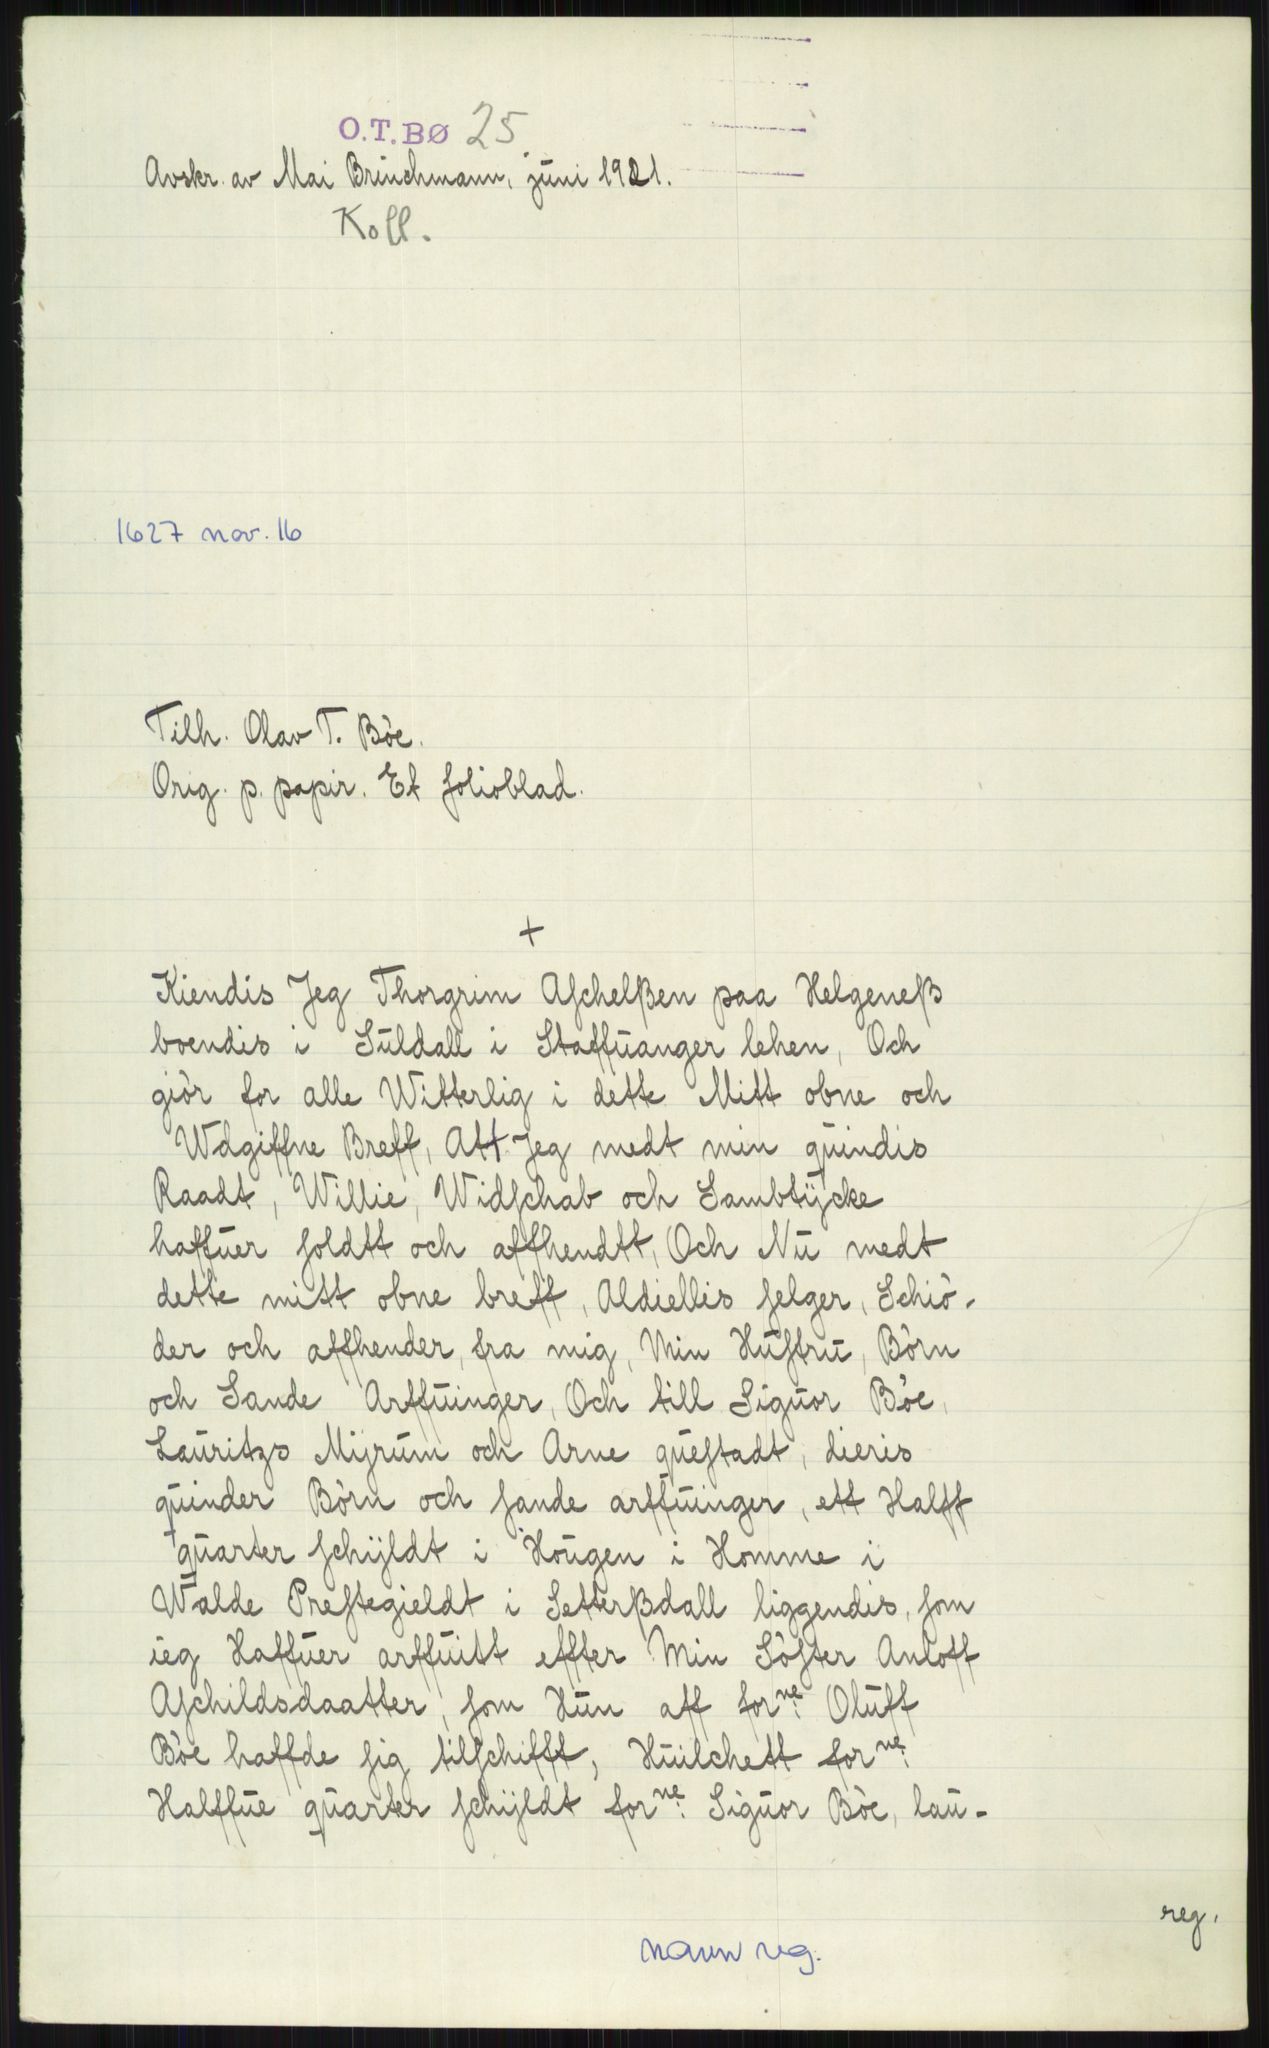 O.T.BØ 25
Avskr. av Mai Brinchmann, juni 1921.
Koll.
1627 nov. 16
Tilh. Olav T. Böe.
Orig. p. papir. Et folioblad.
+
Kiendis Jeg Thorgrim Aſchelßen paa Helgeneß
boendis i Suldall i Staffuanger lehen, Och
giör for alle Witterlig i dette Mitt obne och
Wdgiffne Breff, Att Jeg medt min quindis
Raadt, Willie, Widſchab och Sambtÿcke
haffuer ſoldtt och affhendtt, Och Nu medt
dette mitt obne breff, Aldiellis ſelger, Schiö-
der och affhender, fra mig, Min Huſtru, Börn
och Sande Arffuinger, Och till Siguor Böe,
Lauritzs Mÿrum och Arne queſtadt, dieris
quinder Börn och ſande arffuinger, ett Halff
quarter ſchÿldt i Hougen i Homme i
Walde Preſtegieldt i Setterßdall liggendis, ſom
ieg Haffuer arffuitt effter Min Söſter Anloff
Aſchildsdaatter, ſom Hun aff forne: Oluff
Böe haffde ſig tilſchifft, Huilchett forne:
Halffue quarter ſchÿldt forne: Siguor Böe, lau-
reg.
navn reg.